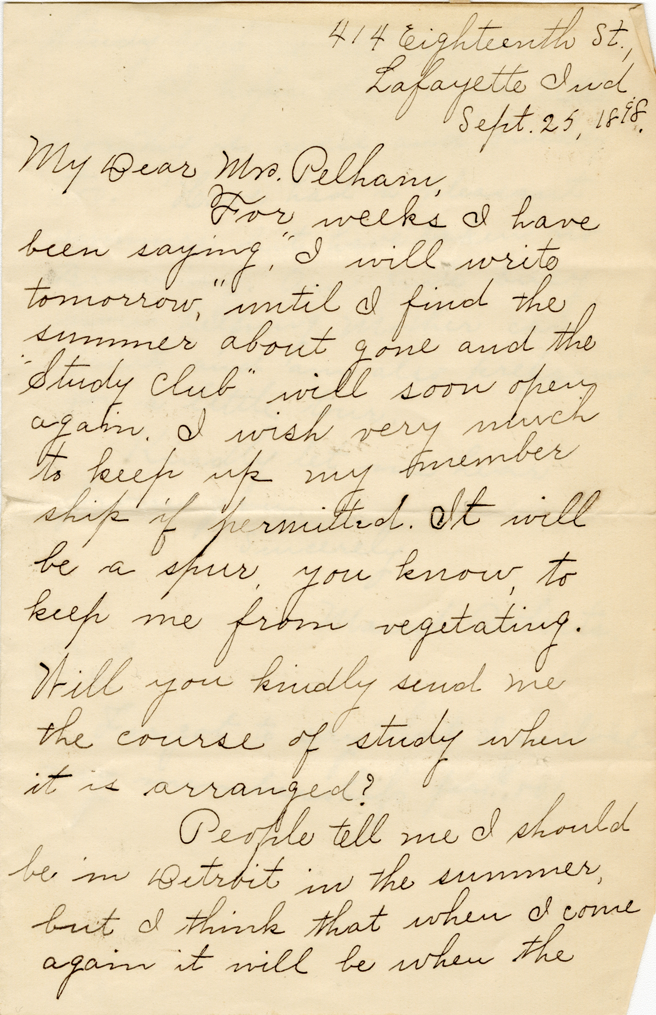 414 Eighteenth St.,
Lafayette Ind.
Sept. 25, 1898.
My Dear Mrs. Pelham,
For weeks I have
been saying, "I will write
tomorrow," until I find the
summer about gone and the
"Study Club" will soon open
again. I wish very much
to keep up my member
ship if permitted. It will
be a spur, you know, to
keep me from vegetating.
Will you kindly send me
the course of study when
it is arranged?
People tell me I should
be in Detroit in the summer,
but I think that when I come
again it will be when the